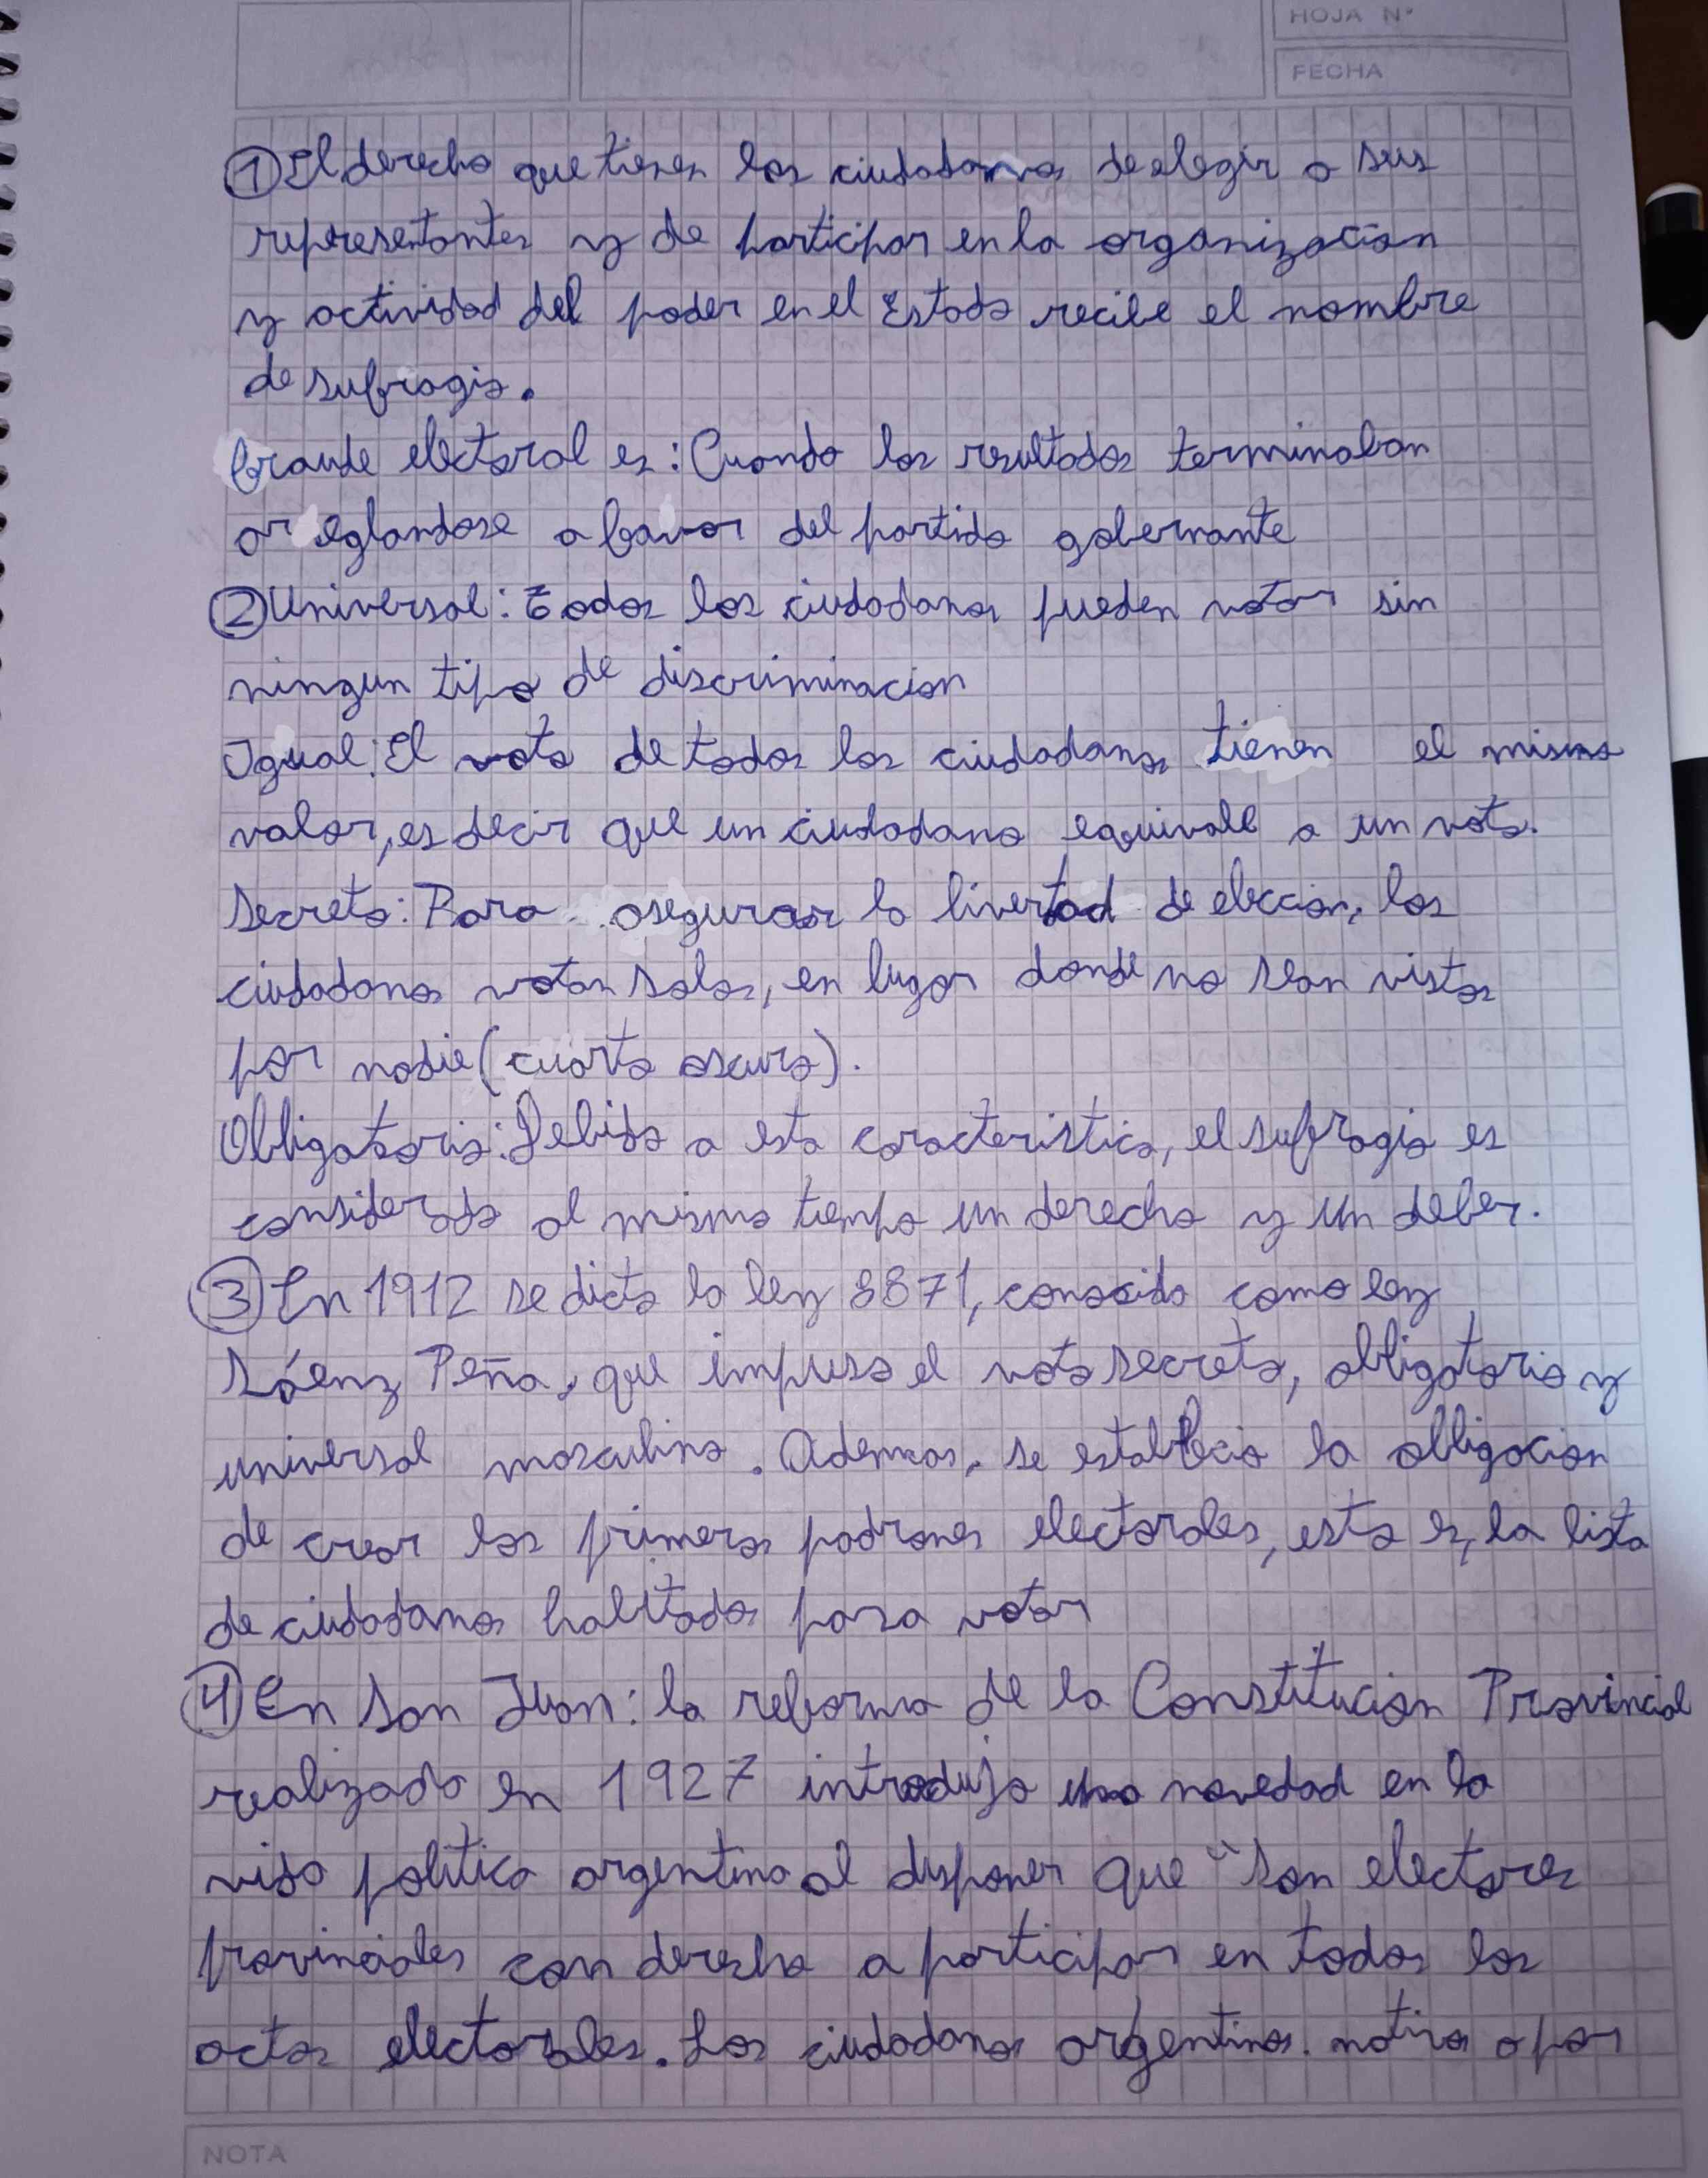 HOJA N°
FECHA
① El derecho que tienen los ciudadanos de elegir a sus
representantes y de participar en la organizacion
y actividad del poder en el Estado recibe el nombre
de sufragio.
fraude electoral es: Cuando los resultados terminaban
arreglandose a favor del partido gobernante
② Universal: Todos los ciudadanos pueden votar sin
ningun tipo de discriminacion
Igual: El voto de todos los ciudadanos tienen el mismo
valor, es decir que un ciudadano equivale a un voto.
Secreto: Para asegurar la livertad de eleccion, los
ciudadanos votan solos, en lugar donde no sean vistos
por nadie (cuarto oscuro).
Obligatorio: Debido a esta caracteristica, el sufragio es
considerado al mismo tiempo un derecho y un deber.
③ En 1912 se dicto la ley 8871, conocida como ley
Sáenz Peña, que impuso el voto secreto, obligatorio y
universal masculino. Ademas, se establecio la obligacion
de crear los primeros padrones electorales, esto es, la lista
de ciudadanos habitados para votar
④ En San Juan: la reforma de la Constitucion Provincial
realizada en 1927 introdujo una novedad en la
vida politica argentina al disponer que "son electores
provinciales con derecho a participar en todos los
actos electorales. Los ciudadanos argentinos nativos o por
NOTA